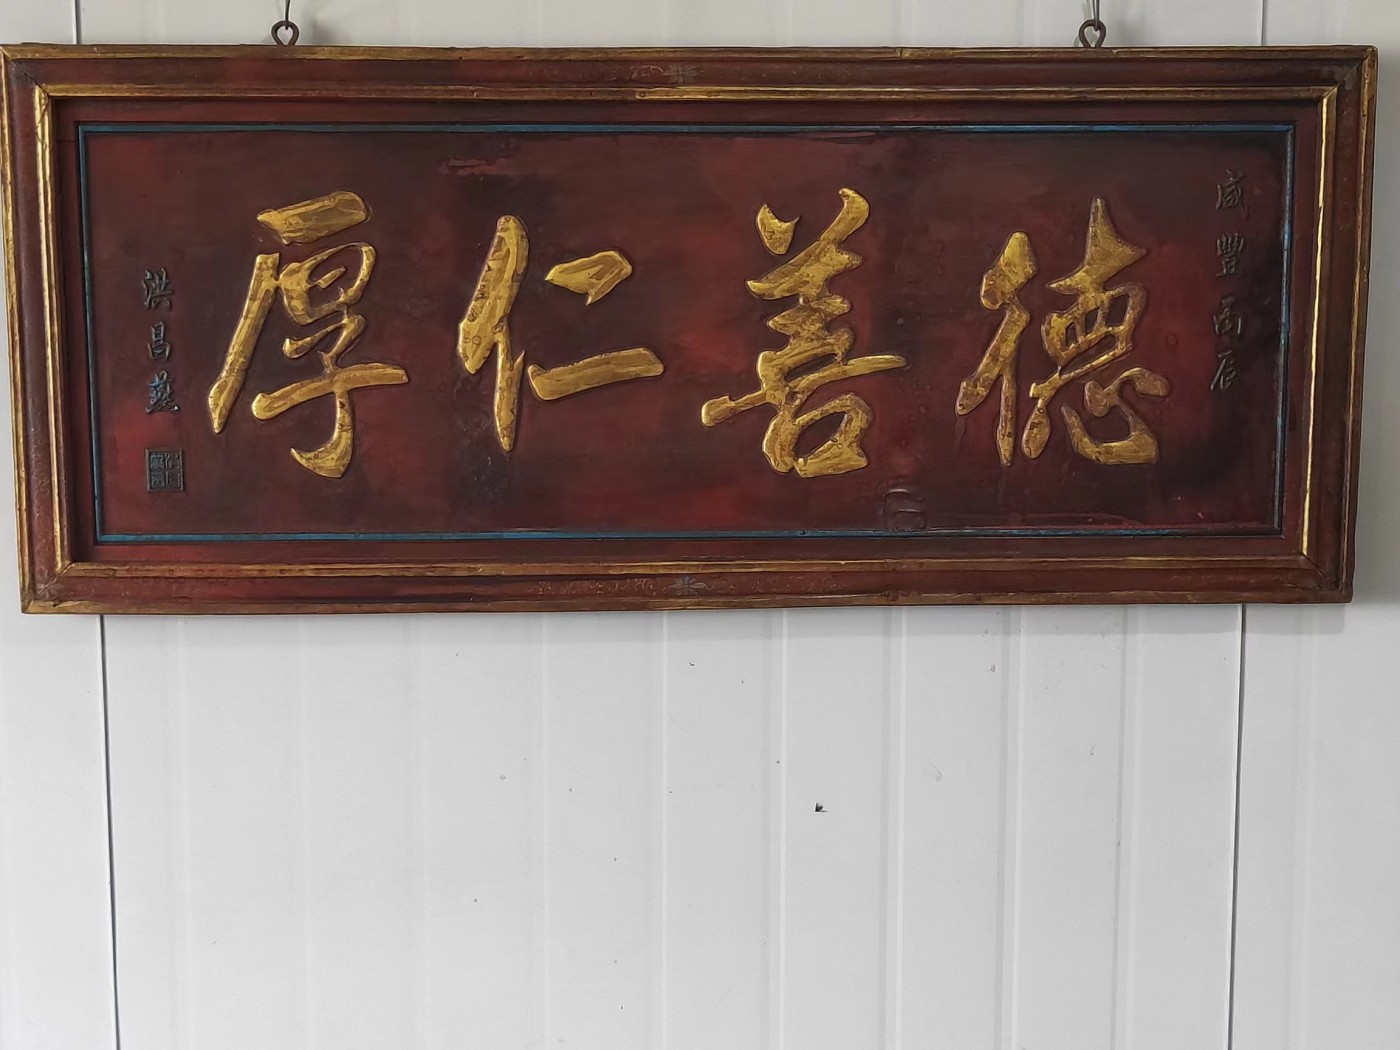 咸豐丙辰
德善仁厚
洪昌燕